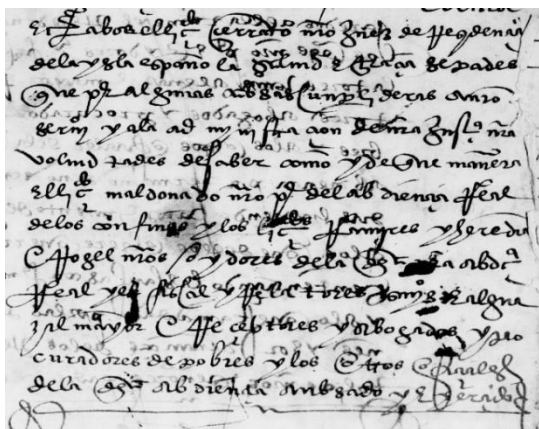 El Rey A vos el liçdo cerrato nro Juez de Resydençia
de la ysla española salud e graçia sepades
que por algunas cabsas cunplideras a nro
serviçio y a la administraçion de nra Justª nra
voluntad es de saber como y de que manera
el liçdo maldonado nro presidente del abdiençia Real
de los confines y los liçdos Ramires y heredia
e Rogel nros oydores de la dicha nra abdª
Real y el fiscal y Relatores y alguazil
mayor e Receptores y abogados y pro
curadores de pobres y los otros ofiçiales
de la dicha abdiençia an usado y exerçido